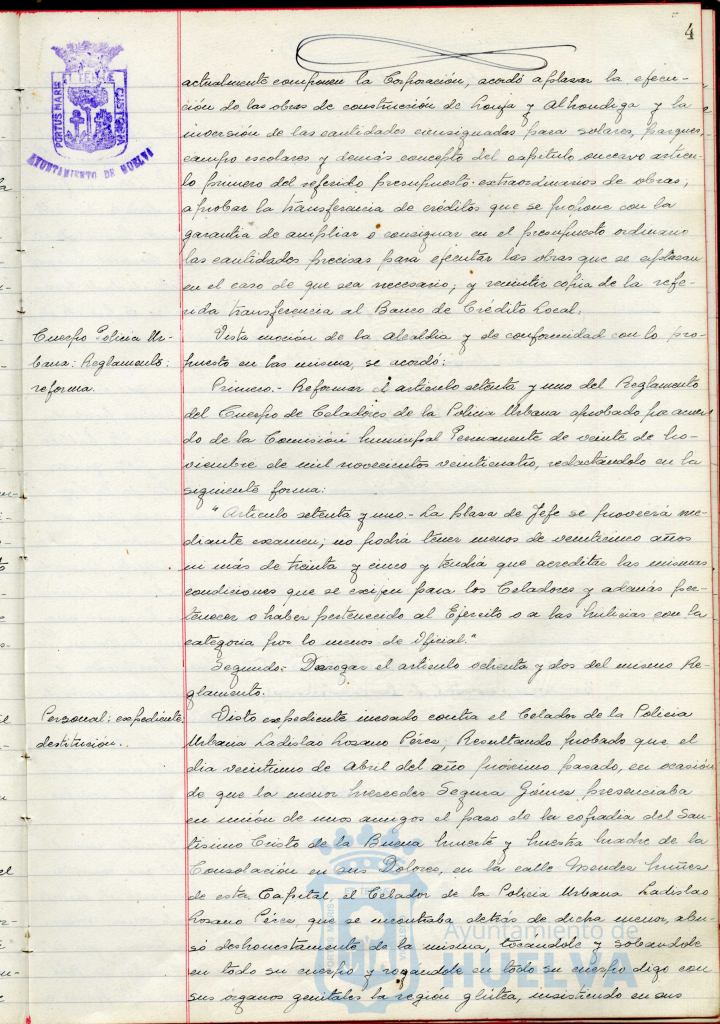 4
PORTUS MARIS ET TERRE CUSTODIA
AYUNTAMIENTO DE HUELVA
actualmente componen la Corporación, acordó aplazar la ejecu-
ción de las obras de construcción de Lonja y Alhondiga y la
inversión de las cantidades consignadas para solares, parques,
campo escolares y demás concepto del capítulo onceavo artícu-
lo primero del referido presupuesto extraordinarios de obras;
aprobar la transferencia de créditos que se propone con la
garantia de ampliar o consignar en el presupuesto ordinario
las cantidades precisas para ejecutar las obras que se aplazan
en el caso de que sea necesario; y remitir copia de la refe-
rida transferencia al Banco de Crédito Local.
Cuerpo Policia Ur-
bana: Reglamento:
reforma.
Vista moción de la Alcaldia y de conformidad con lo pro-
puesto en las misma, se acordó:
Primero.- Reformar el articulo setenta y uno del Reglamento
del Cuerpo de Celadores de la Policia Urbana aprobado por acuer-
do de la Comisión Municipal Permanente de veinte de No-
viembre de mil novecientos veinticuatro, redactándolo en la
siguiente forma:
"Articulo setenta y uno.- La plaza de Jefe se proveerá me-
diante examen; no podrá tener menos de veinticinco años
ni más de treinta y cinco y tendrá que acreditar las mismas
condiciones que se exijen para los Celadores y además per-
tenecer o haber pertenecido al Ejército o a las Milicias con la
categoria por lo menos de Oficial."
Segundo: Derogar el articulo ochenta y dos del mismo Re-
glamento.
Personal: expediente:
destitución.
Visto expediente incoado contra el Celador de la Policia
Urbana Ladislao Lozano Pérez; Resultando probado que el
dia veintiuno de Abril del año próximo pasado, en ocasión
de que la menor Mercedes Segura Gómez presenciaba
en unión de unos amigos el paso de la cofradia del San-
tisimo Cristo de la Buena Muerte y Nuestra Madre de la
Consolación en sus Dolores, en la calle Mendez Nuñez
de esta Capital, el Celador de la Policia Urbana Ladislao
Lozano Pérez que se encontraba detrás de dicha menor, abu-
só deshonestamente de la misma, tocandole y sobandole
en todo su cuerpo y rozándole en todo su cuerpo digo con
sus órganos genitales la región glútea, insistiendo en sus
Ayuntamiento de
HUELVA